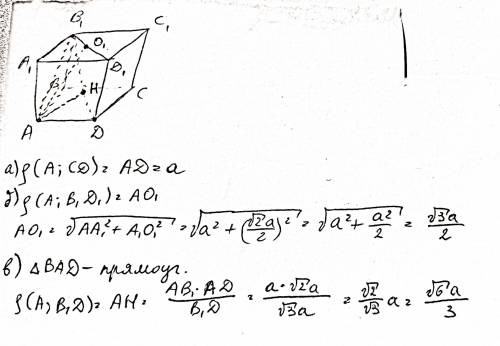 B₁
C₁
O₁
A₁
D₁
B
H
C
A
D
а) ρ(A; CD) = AD = a
б) ρ(A; B₁D₁) = AO₁
AO₁ = √(AA₁² + A₁O₁²) = √(a² + (√2a/2)²) = √(a² + a²/2) = √3a/2
в) △BAD – прямоуг.
ρ(A; B₁D) = AH = AB₁·AD/B₁D = a·√2a/√3a = √2/√3 a = √6a/3